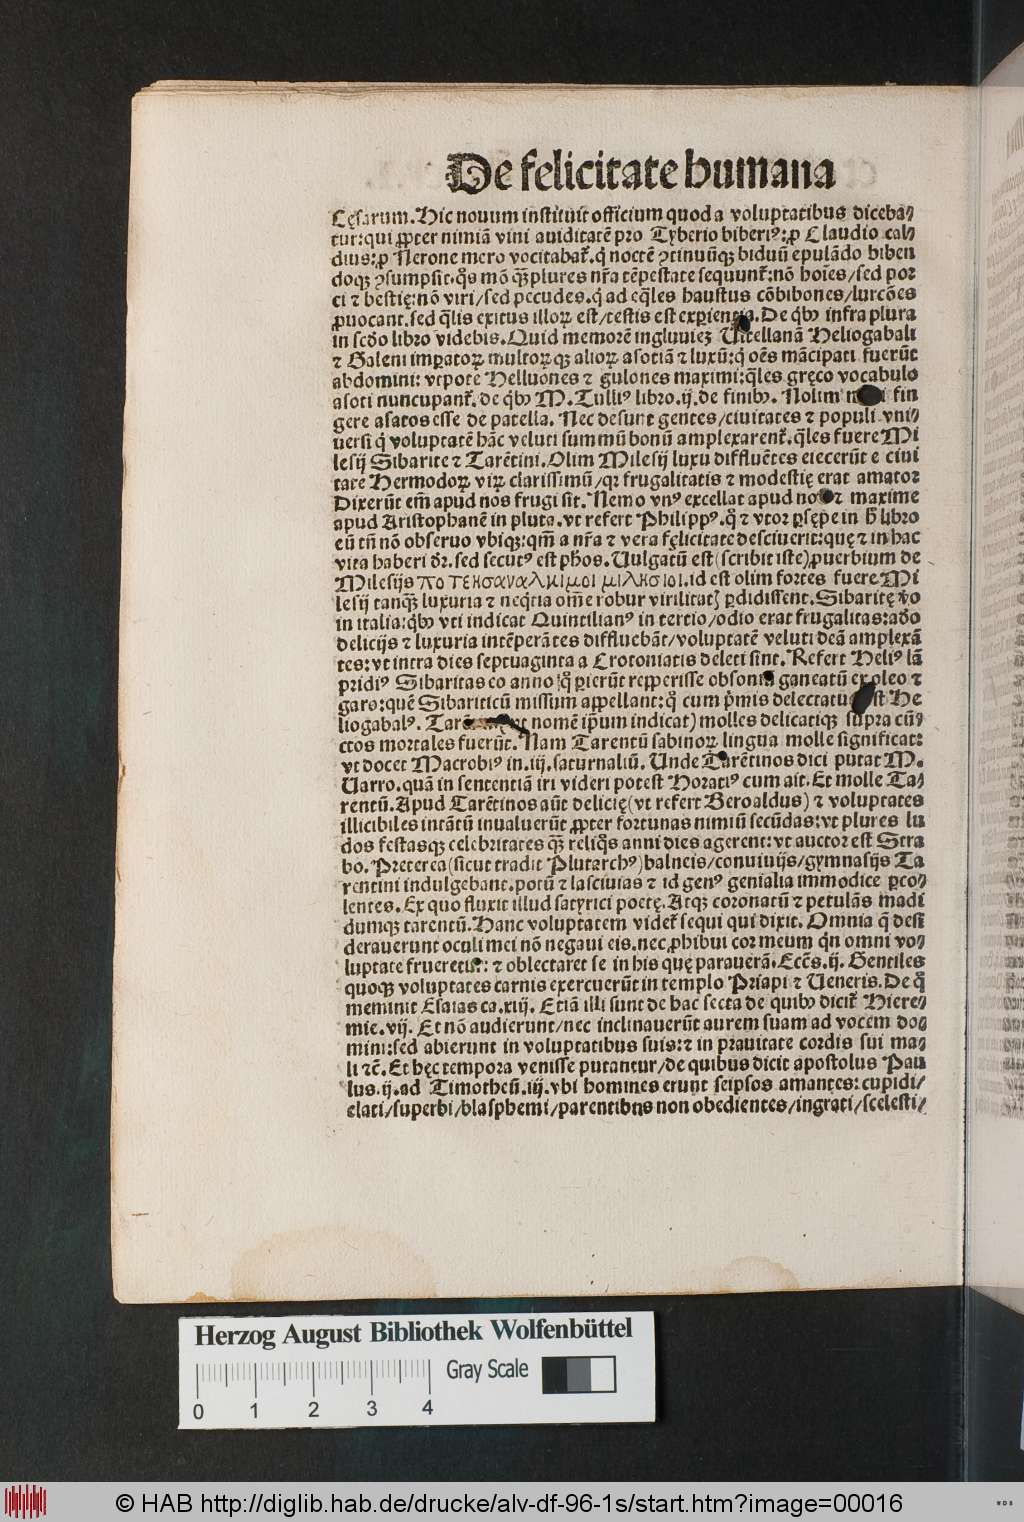 De felicitate humana
Cęsarum. Hic nouum instituit officium quod a voluptatibus diceba⸗
tur: qui ꝓpter nimiã vini auiditatẽ pro Tyberio biberiꝰ: ꝓ Claudio cal⸗
dius: ꝓ Nerone mero vocitabat̃. q̇ noctẽ ꝯtinuũqꝫ biduũ epulãdo biben
doqꝫ ꝯsumpsit. q̃s mõ qꝫ̃ plures nr̃a tẽpestate sequunt̃: nõ hoĩes/ sed por
ci ⁊ bestię: nõ viri/ sed pecudes. q̇ ad eq̃les haustus cõbibones/ lurcões
ꝓuocant. sed q̃lis exitus illoꝝ est/ testis est exꝑientia. De q̇bꝰ infra plura
in scďo libro videbis. Quid memorẽ ingluuieꝫ Vitellanã Heliogabali
⁊ Galeni imꝑatoꝝ multoꝝqꝫ alioꝝ asotiã ⁊ luxũ: q̇ oẽs mãcipati fuerũt
abdomini: vtpote Helluones ⁊ gulones maximi: q̃les gręco vocabulo
asoti nuncupant̃. de q̇bꝰ M. Tulliꝰ libro. ij. de finibꝰ. Nolim fin
gere asatos esse de patella. Nec desunt gentes/ ciuitates ⁊ populi vni⸗
uersi q̇ voluptatẽ hãc veluti summũ bonũ amplexarent̃. q̃les fuere Mi
lesij Sibarite ⁊ Tarẽtini. Olim Milesij luxu diffluẽtes eiecerũt e ciui
tate Hermodoꝝ viꝝ clarissimũ/ qꝛ frugalitatis ⁊ modestię erat amator
Dixerũt em̃ apud nos frugi sit. Nemo vnꝰ excellat apud nos ⁊ maxime
apud Aristophanẽ in pluta. vt refert Philippꝰ. q̊ ⁊ vtor ꝑsępe in h̃ libro
eũ tñ nõ obseruo vbiqꝫ: qm̃ a nr̃a ⁊ vera fęlicitate desciuerit: quę ⁊ in hac
vita haberi ďr. sed secutꝰ est pħos. Vulgatũ est (scribit iste) ꝓuerbium de
Milesijs ποτεησαναλκιμοι μιλησιοι. id est olim fortes fuere Mi
lesij tanqꝫ̃ luxuria ⁊ neq̃tia om̃e robur virilitatꝭ ꝑdidissent. Sibaritę v̊o
in italia: q̇bꝰ vti indicat Quintilianꝰ in tertio/ odio erat frugalitas: ađo
delicijs ⁊ luxuria intẽperãtes diffluebãt/ voluptatẽ veluti deã amplexã
tes: vt intra dies septuaginta a Crotoniatis deleti sint. Refert Heliꝰ lã
pridiꝰ Sibaritas eo anno q̊ ꝑierũt repperisse obsonij ganeatũ ex oleo ⁊
garo: quẽ Sibariticũ missum appellant: q̊ cum p̃mis delectatus est He
liogabalꝰ. nomẽ ip̃um indicat) molles delicatiqꝫ supra cũ⸗
ctos mortales fuerũt. Nam Tarentũ sabinoꝝ lingua molle significat:
vt docet Macrobiꝰ in. iij. saturnaliũ. Unde Tarẽtinos dici putat M.
Varro. quã in sententiã iri videri potest Horatiꝰ cum ait. Et molle Ta⸗
rentũ. Apud Tarẽtinos aũt delicię (vt refert Beroaldus) ⁊ voluptates
illicibiles intãtũ inualuerũt ꝓpter fortunas nimiũ secũdas: vt plures lu
dos festasqꝫ celebritates qꝫ̃ reliq̃s anni dies agerent: vt auctor est Stra
bo. Preterea (sicut tradit Plutarchꝰ) balneis/ conuiuijs/ gymnasijs Ta
rentini indulgebant. potũ ⁊ lasciuias ⁊ id genꝰ genialia immodice ꝑco⸗
lentes. Ex quo fluxit illud satyrici poetę. Atqꝫ coronatũ ⁊ petulãs madi
dumqꝫ tarentũ. Hanc voluptatem videt̃ sequi qui dixit. Omnia q̃ desi
derauerunt oculi mei nõ negaui eis. nec ꝓhibui cor meum q̇n omni vo⸗
luptate frueretur: ⁊ oblectaret se in his quę parauerã. Ecc̃s. ij. Gentiles
quoqꝫ voluptates carnis exercuerũt in templo Priapi ⁊ Veneris. De q̊
meminit Esaias ca. xiij. Etiã illi sunt de hac secta de quibꝰ dicit̃ Hiere⸗
mie. vij. Et nõ audierunt/ nec inclinauerũt aurem suam ad vocem do⸗
mini: sed abierunt in voluptatibus suis: ⁊ in prauitate cordis sui ma⸗
li ⁊c̃. Et hęc tempora venisse putantur/ de quibus dicit apostolus Pau
lus. ij. ad Timotheũ. iij. vbi homines erunt seipsos amantes: cupidi/
elati/ superbi/ blasphemi/ parentibus non obedientes/ ingrati/ scelesti/
Herzog August Bibliothek Wolfenbüttel
Gray Scale
0 1 2 3 4
© HAB http://diglib.hab.de/drucke/alv-df-96-1s/start.htm?image=00016